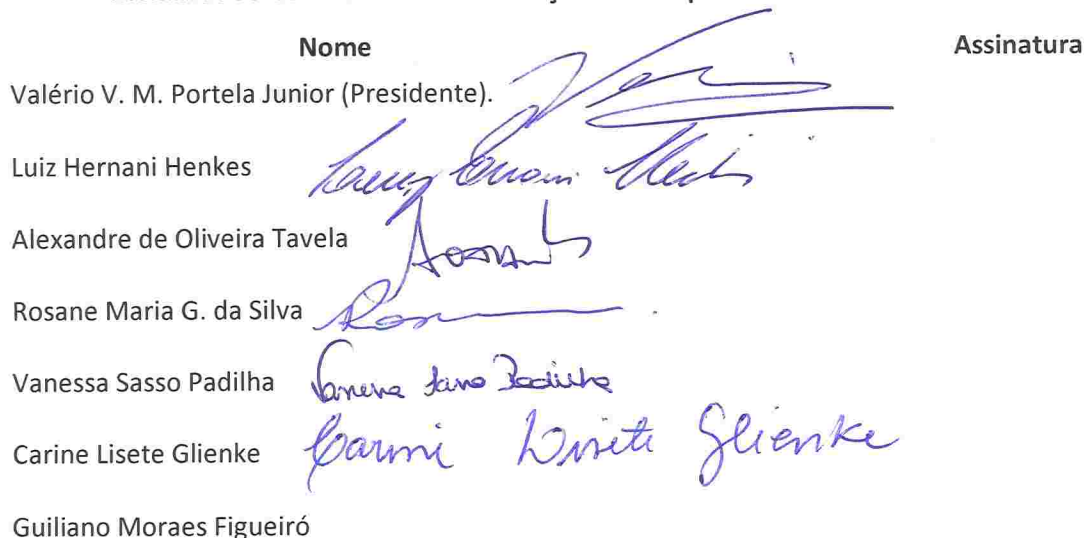 Nome Assinatura
Valério V. M. Portela Junior (Presidente).
Luiz Hernani Henkes
Alexandre de Oliveira Tavela
Rosane Maria G. da Silva
Vanessa Sasso Padilha Vanessa Sasso Padilha
Carine Lisete Glienke Carine Lisete Glienke
Guiliano Moraes Figueiró